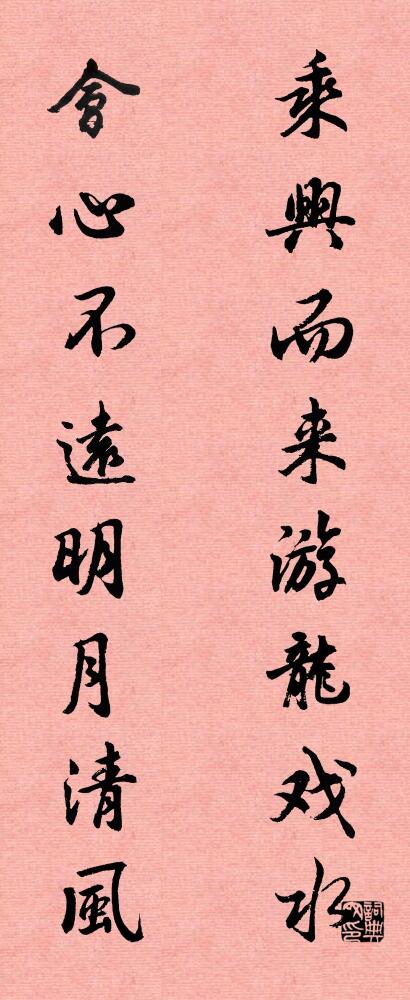 乘興而来游龍戏水
會心不遠明月清風